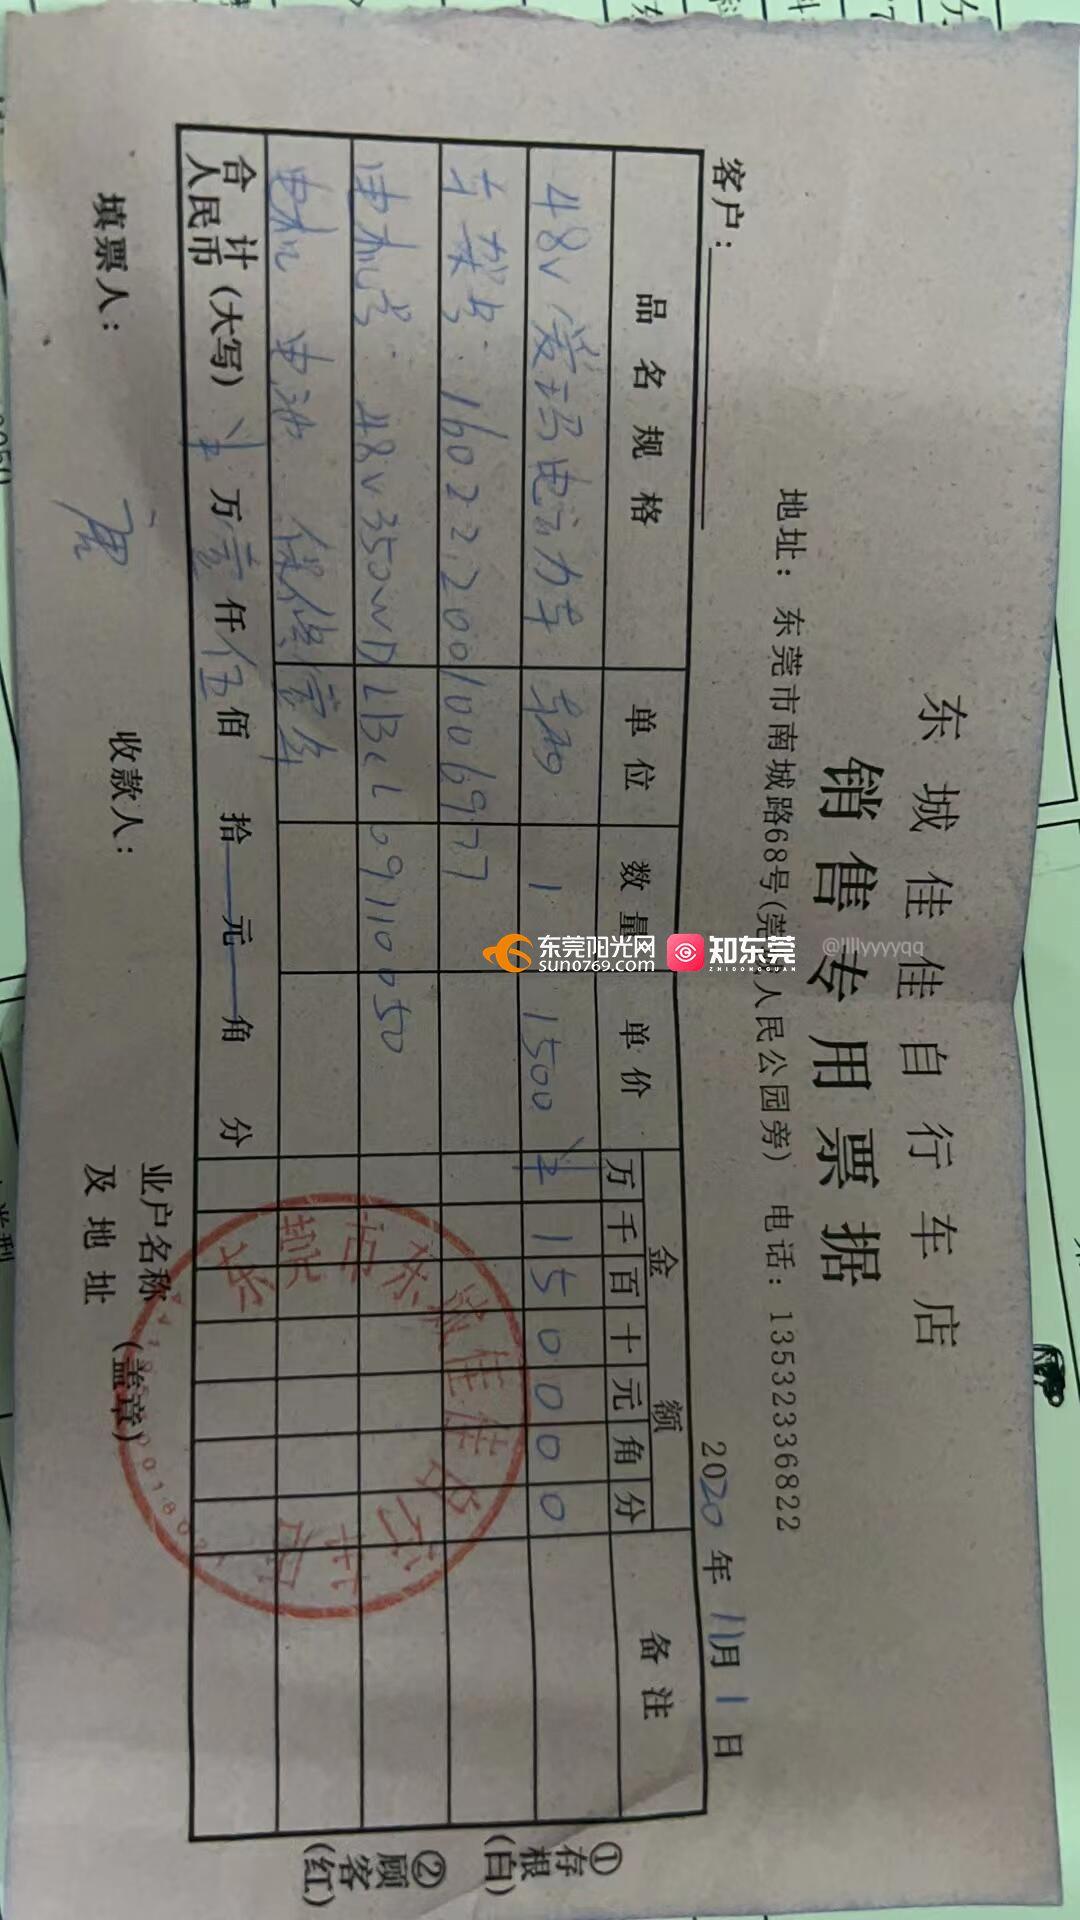 东城佳佳自行车店
销售专用票据
地址：东莞市南城路68号(莞城人民公园旁) 电话：13532336822
客户： 2020年11月1日
品名规格 单位 数量 单价 金额 备注
万 千 百 十 元 角 分
48V爱玛电动力车 车辆 1 1500 ¥ 1 5 0 0 0 0
车架号：160222001006977
电机号：48V350WDLBCL09110050
电机 电池 保修壹年
合计人民币(大写) ¥ 万 壹 仟 伍 佰 拾 元 角 分
填票人： 收款人： 业户名称及地址 (盖章)
①存根(白) ②顾客(红)
东莞市东城佳佳
东莞阳光网
sun0769.com
知东莞
ZHIDONGGUAN
@llllyyyyqq